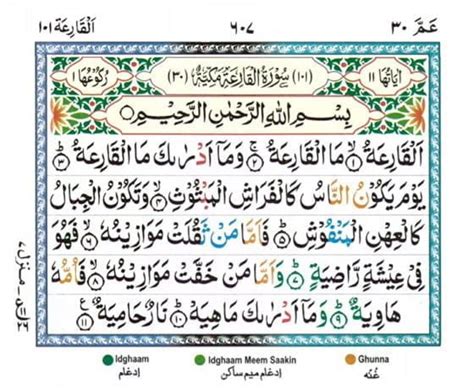 عَمَّ ٣٠ ٦٠٧ اَلْقَارِعَة ١٠١
اٰيَاتُهَا ١١ (١٠١) سُوْرَةُ الْقَارِعَةِ مَكِّيَّةٌ (٣٠) رُكُوْعُهَا ١
بِسْمِ اللهِ الرَّحْمٰنِ الرَّحِيْمِ
اَلْقَارِعَةُ ۙ﴿١﴾ مَا الْقَارِعَةُ ۚ﴿٢﴾ وَمَاۤ اَدْرٰىكَ مَا الْقَارِعَةُ ؕ﴿٣﴾
يَوْمَ يَكُوْنُ النَّاسُ كَالْفَرَاشِ الْمَبْثُوْثِ ۙ﴿٤﴾ وَتَكُوْنُ الْجِبَالُ
كَالْعِهْنِ الْمَنْفُوْشِ ؕ﴿٥﴾ فَاَمَّا مَنْ ثَقُلَتْ مَوَازِيْنُهٗ ۙ﴿٦﴾ فَهُوَ
فِيْ عِيْشَةٍ رَّاضِيَةٍ ؕ﴿٧﴾ وَاَمَّا مَنْ خَفَّتْ مَوَازِيْنُهٗ ۙ﴿٨﴾ فَاُمُّهٗ
هَاوِيَةٌ ؕ﴿٩﴾ وَمَاۤ اَدْرٰىكَ مَا هِيَهْ ؕ﴿١٠﴾ نَارٌ حَامِيَةٌ ﴿١١﴾
Idghaam Idghaam Meem Saakin Ghunna
اِدغام اِدغام میم ساکن غُنّه